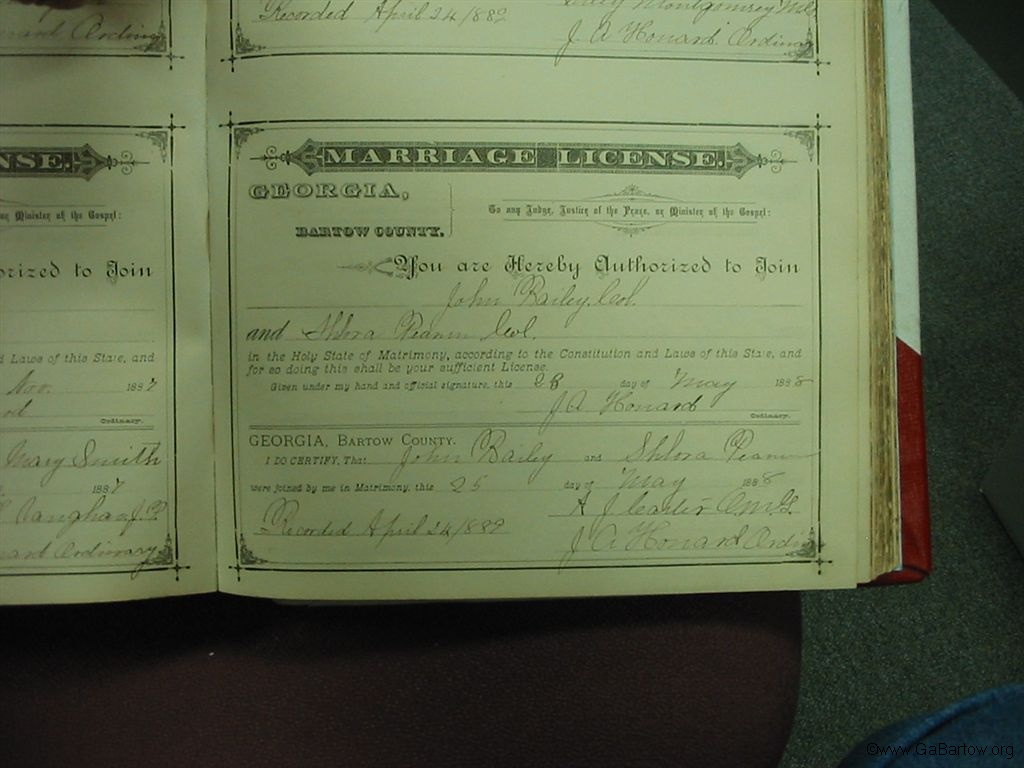 Recorded April 24/1889
J A Howard Ordinary
ard Ordinary
NSE.
or Minister of the Gospel:
orized to Join
d Laws of this State, and
Nov. 1887
od
Ordinary.
Mary Smith
1887
Vaughan J.P.
ard Ordinary
MARRIAGE LICENSE.
GEORGIA,
BARTOW COUNTY.
To any Judge, Justice of the Peace, or Minister of the Gospel:
You are Hereby Authorized to Join
John Bailey, Col.
and Col.
in the Holy State of Matrimony, according to the Constitution and Laws of this State, and
for so doing this shall be your sufficient License.
Given under my hand and official signature, this 23 day of May 1888
J A Howard
Ordinary.
GEORGIA, BARTOW COUNTY.
I DO CERTIFY, That John Baily and
were joined by me in Matrimony, this 25 day of May 1888
A J Carter O.M.G.
Recorded April 24/1889
J A Howard Ordin
©www.GaBartow.org